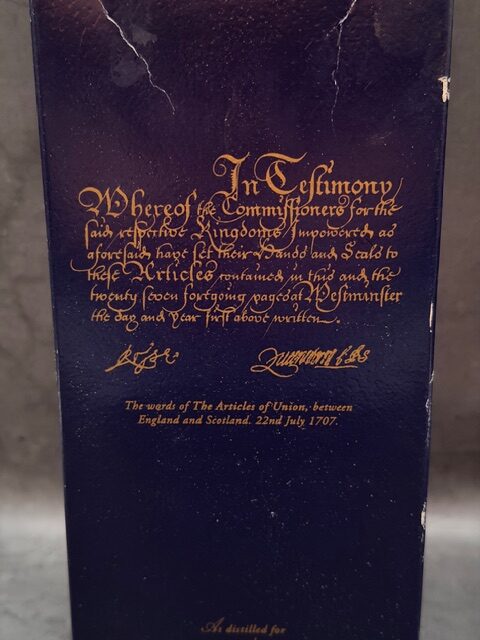 In Testimony
Whereof the Commissioners for the
said respective Kingdoms Impowered as
aforesaid have set their Hands and Seals to
these Articles contained in this and the
twenty seven foregoing pages at Westminster
the day and year first above written.
The words of The Articles of Union, between
England and Scotland. 22nd July 1707.
As distilled for